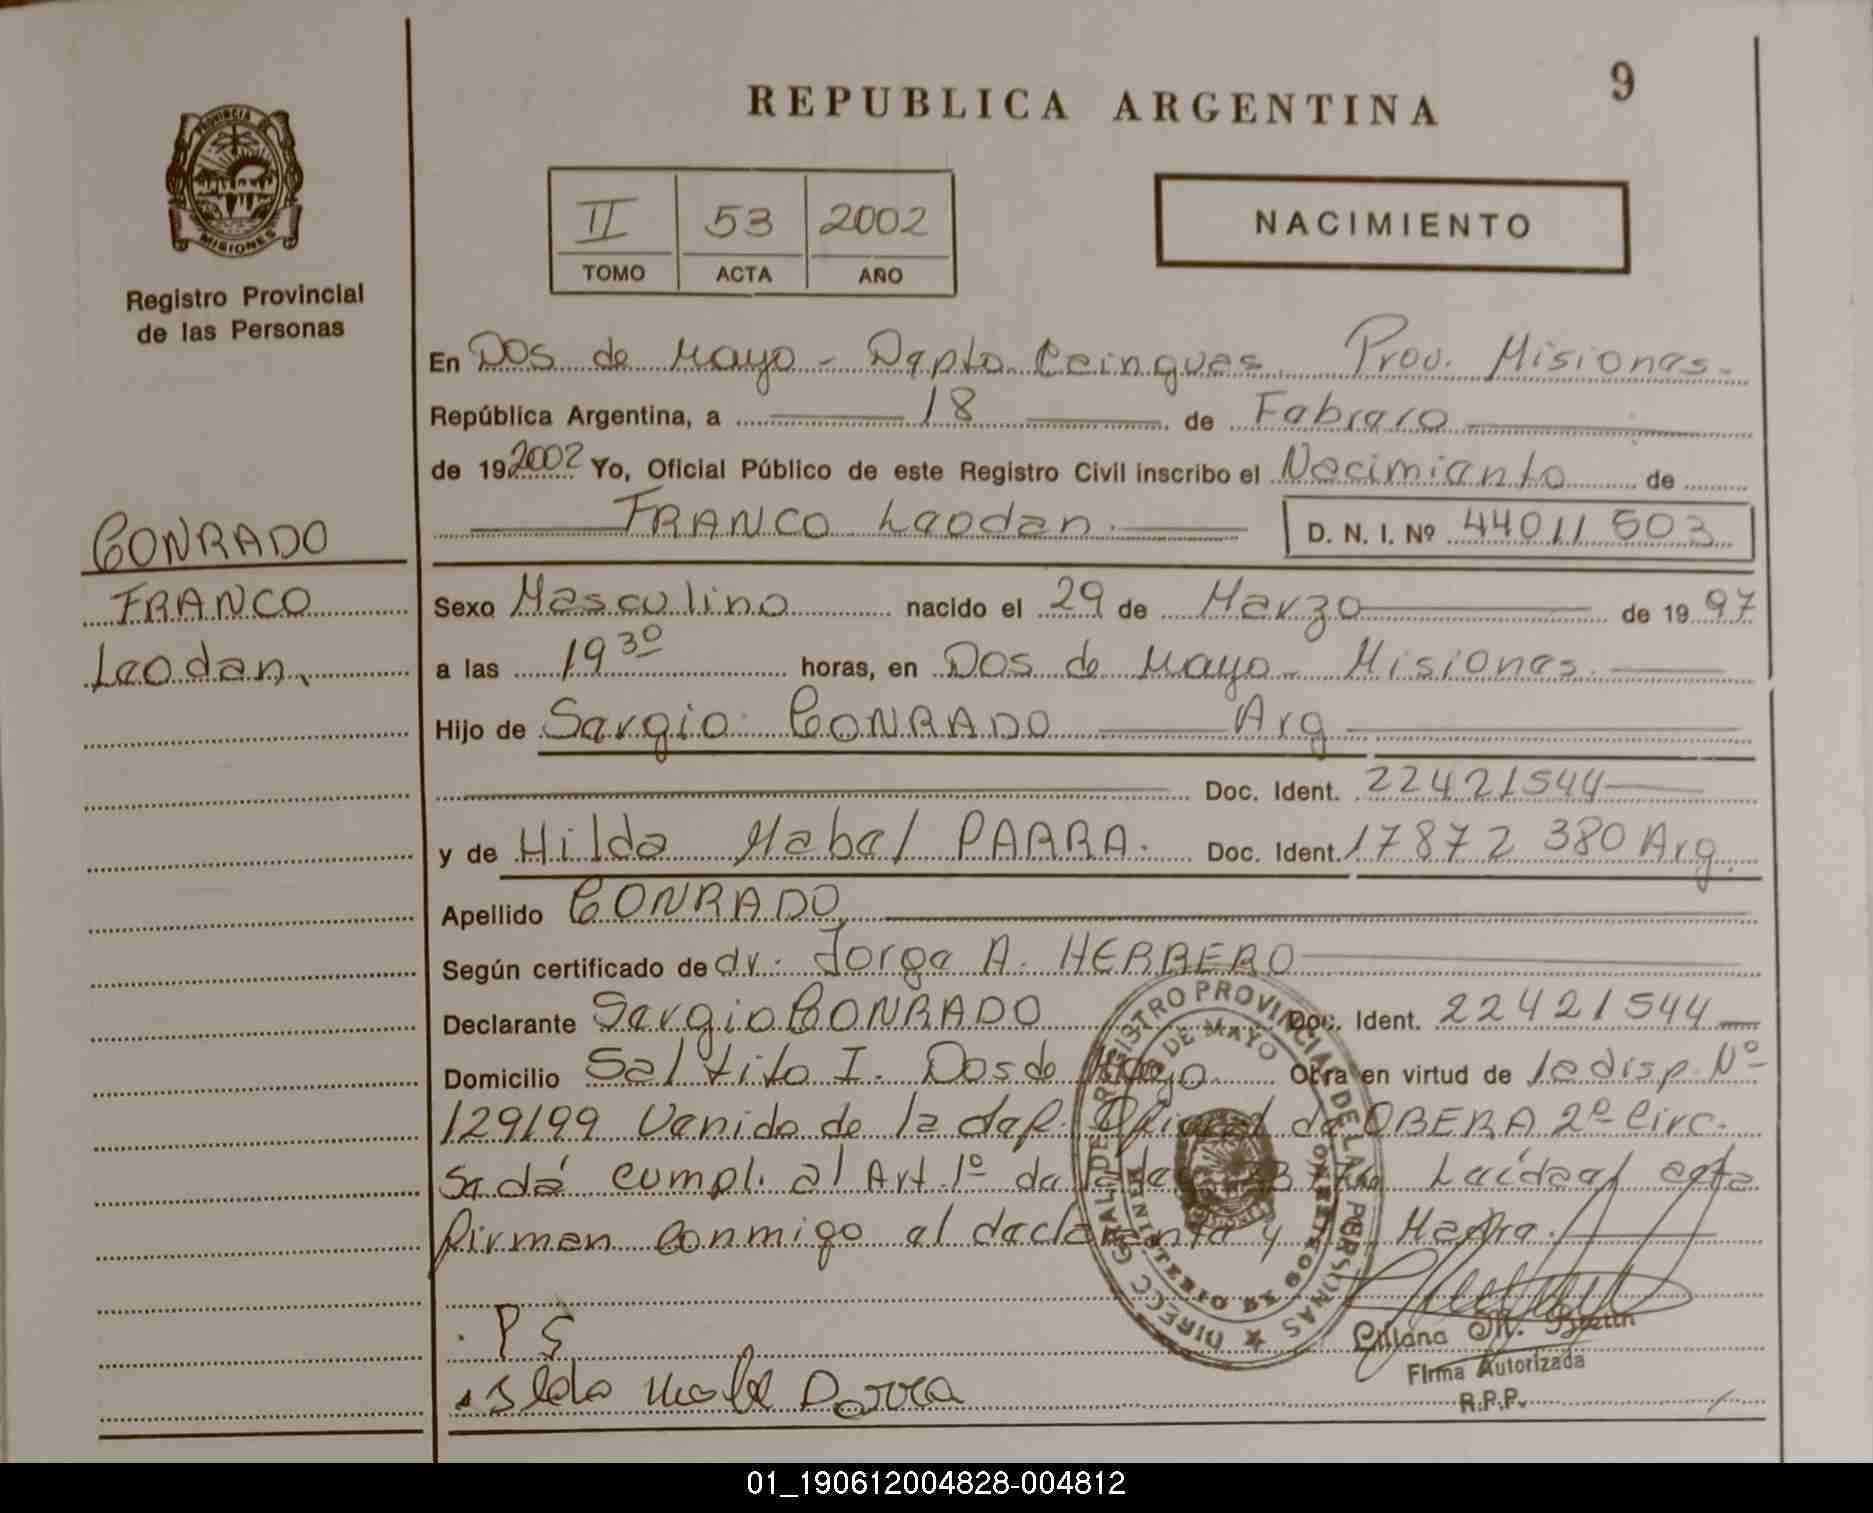 REPUBLICA ARGENTINA
9
PROVINCIA DE
MISIONES
Registro Provincial
de las Personas
II 53 2002
TOMO ACTA AÑO
NACIMIENTO
En Dos de Mayo - Depto Cainguas. Prov. Misiones.
República Argentina, a 18 de Febrero
de 19 2002 Yo, Oficial Público de este Registro Civil inscribo el Nacimiento de
FRANCO Leodan. D. N. I. Nº 44011 503
CONRADO
FRANCO
Leodan.
Sexo Masculino nacido el 29 de Marzo de 19 97
a las 19 30 horas, en Dos de Mayo - Misiones.
Hijo de Sergio CONRADO Arg
Doc. Ident. 22421544
y de Hilda Mabel PARRA. Doc. Ident. 17872 380 Arg.
Apellido CONRADO
Según certificado de dr. Jorge A. HERRERO
Declarante Sergio CONRADO Doc. Ident. 22421544
Domicilio Saltito I. Dos de Mayo Otra en virtud de la disp. Nº
129/99 Venido de la del. Oficial de OBERA 2º Circ.
Se dá cumpl. al Art. 1º de la Leída el acta
firman conmigo el declarante y la Madre.
DIRECC. GRAL. DE REGISTRO PROVINCIAL DE LAS PERSONAS
DOS DE MAYO
MINISTERIO DE GOBIERNO
P S
Ilda Mabel Parra
Liliana M.
Firma Autorizada
R.P.P.
01_190612004828-004812